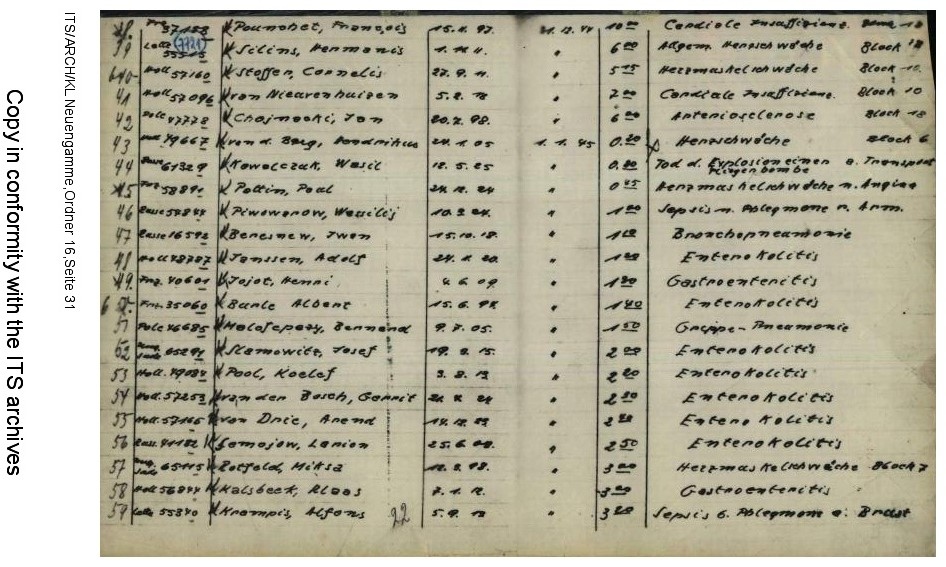 Copy in conformity with the ITS archives
ITS/ARCH/KL Neuengamme, Ordner 16, Seite 31
57158 Poumchet, François 15. 4. 97. 31.12.44 10 00 Cardiale Insuffizienz.
39 Lette 55515 (7721) Silins, Hermanis " 6 00 Allgem. Herzschwäche Block
640 Holl 57160 Stoffer, Cornelis 27. 9. 11. " 5 15 Herzmuskelschwäche Block 10.
41 Holl 57096 van Nieuvenhuizen 5. 2. 18 " 7 00 Cardiale Insuffizienz. Block 10
42 Pole 47778 Chojnacki, Jan 20. 7. 98. " 6 00 Arteriosclerose Block 10
43 Holl 49667 van d. Berg, Hendrikus 24. 1 05 1. 1. 45 0. 20 Herzschwäche Block 6
44 Russ 61329 Kowalczuk, Wasil 12. 5. 25 " 0. 30 Tod d. Explosion einer a. Transport
Fliegerbombe
45 Frz 58891 Pottin, Paul 24. 12. 24 " 0 45 Herzmuskelschwäche n. Angina
46 Russe Piwowarow, Wassilij 10. 2 24. " 1 00 Sepsis n. Phlegmone r. Arm.
47 Russe 16592 Beresnew, Iwan 15. 10. 18. " 1 10 Bronchopneumonie
48 Holl 78787 Janssen, Adolf 24. 1 20. " 1 20 Enterokolitis
49. Frz. 40601 Jojot, Henri 4. 6 09 " 1 30 Gastroenteritis
6 50. Frz. 35060 Burle Albert 15. 6. 98. " 1 40 Enterokolitis
51 Pole 46685 Malasepszy, Bernard 9. 7. 05. " 1 50 Grippe-Pneumonie
52 Ung. Jude 65291 Slamowitz, Josef 19. 2. 15. " 2 00 Enterokolitis
53 Holl. 49084 Pool, Roelof 3. 8. 13 " 2 20 Enterokolitis
54 Holl. 57253 van den Bosch, Gerrit 24 " 2 30 Enterokolitis
55 Holl. 57165 van Drie, Arend 14. 12. " 2 40 Enterokolitis
56 Russ. 41182 Semojow, Larion 25. 6 " 2 50 Enterokolitis
57 Ung. Jude 65115 Botfeld, Miksa 12. 2. 98. " 3 00 Herzmuskelschwäche Block 7
58 Holl 56844 Kalsbeek, Klaas 7. 1. 12. " 3 00 Gastroenteritis
59 Lette 55840 Krampis, Alfons 22 5. 9. 13 " 3 20 Sepsis b. Phlegmone a. Brust